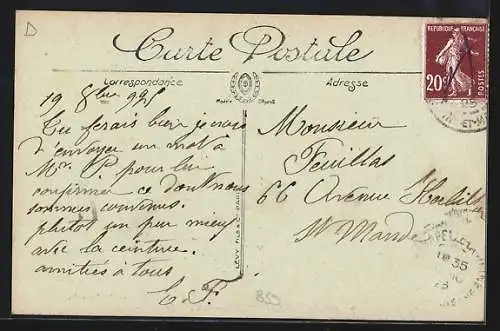 D
Carte Postale
Correspondance
Adresse
REPUBLIQUE FRANÇAISE
20c
POSTES
19 8bre
Tu ferais bien je crois
d'envoyer un mot à
Mr. P pour lui
confirmer ce dont nous
sommes convenus.
plutôt un peu mieux
avec la ceinture.
amitiés à tous
E F.
Monsieur
Feuillas
66 Avenue
St Mandé
LEVY FILS & Cie PARIS
853